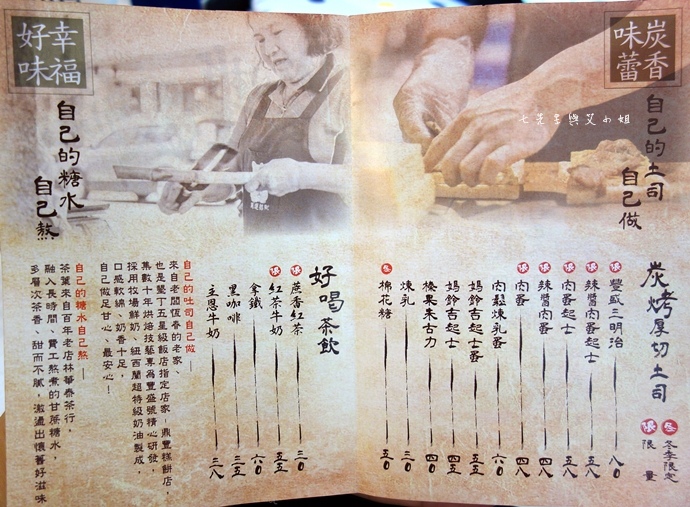 炭香味蕾
自己的土司
自己做
七先生與艾小姐
炭烤厚切土司
冬 冬季限定
限 限量
豐盛三明治 八〇
辣醬肉蛋起士 五八
肉蛋起士 五八
辣醬肉蛋 四八
肉蛋 四八
肉鬆煉乳蛋 六〇
媽鈴吉起士蛋 五五
媽鈴吉起士 四五
榛果朱古力 四〇
煉乳 四〇
棉花糖 五〇
幸福好味
自己的糖水
自己熬
好喝茶飲
蔗香紅茶 三〇
紅茶牛奶 五五
拿鐵 六〇
黑咖啡 三五
主恩牛奶 三八
自己的吐司自己做—
來自老闆恆春的老家、
也是墾丁五星級飯店指定店家—鼎豐糕餅店，
集數十年烘焙技藝專為豐盛號精心研發，
採用牧場鮮奶、紐西蘭超特級奶油製成，
口感軟綿、奶香十足，
自己做足甘心、最安心！
自己的糖水自己熬—
茶葉來自百年老店林華泰茶行，
融入長時間、費工熬煮的甘蔗糖水，
多層次茶香、甜而不膩，滋過出懷舊好滋味